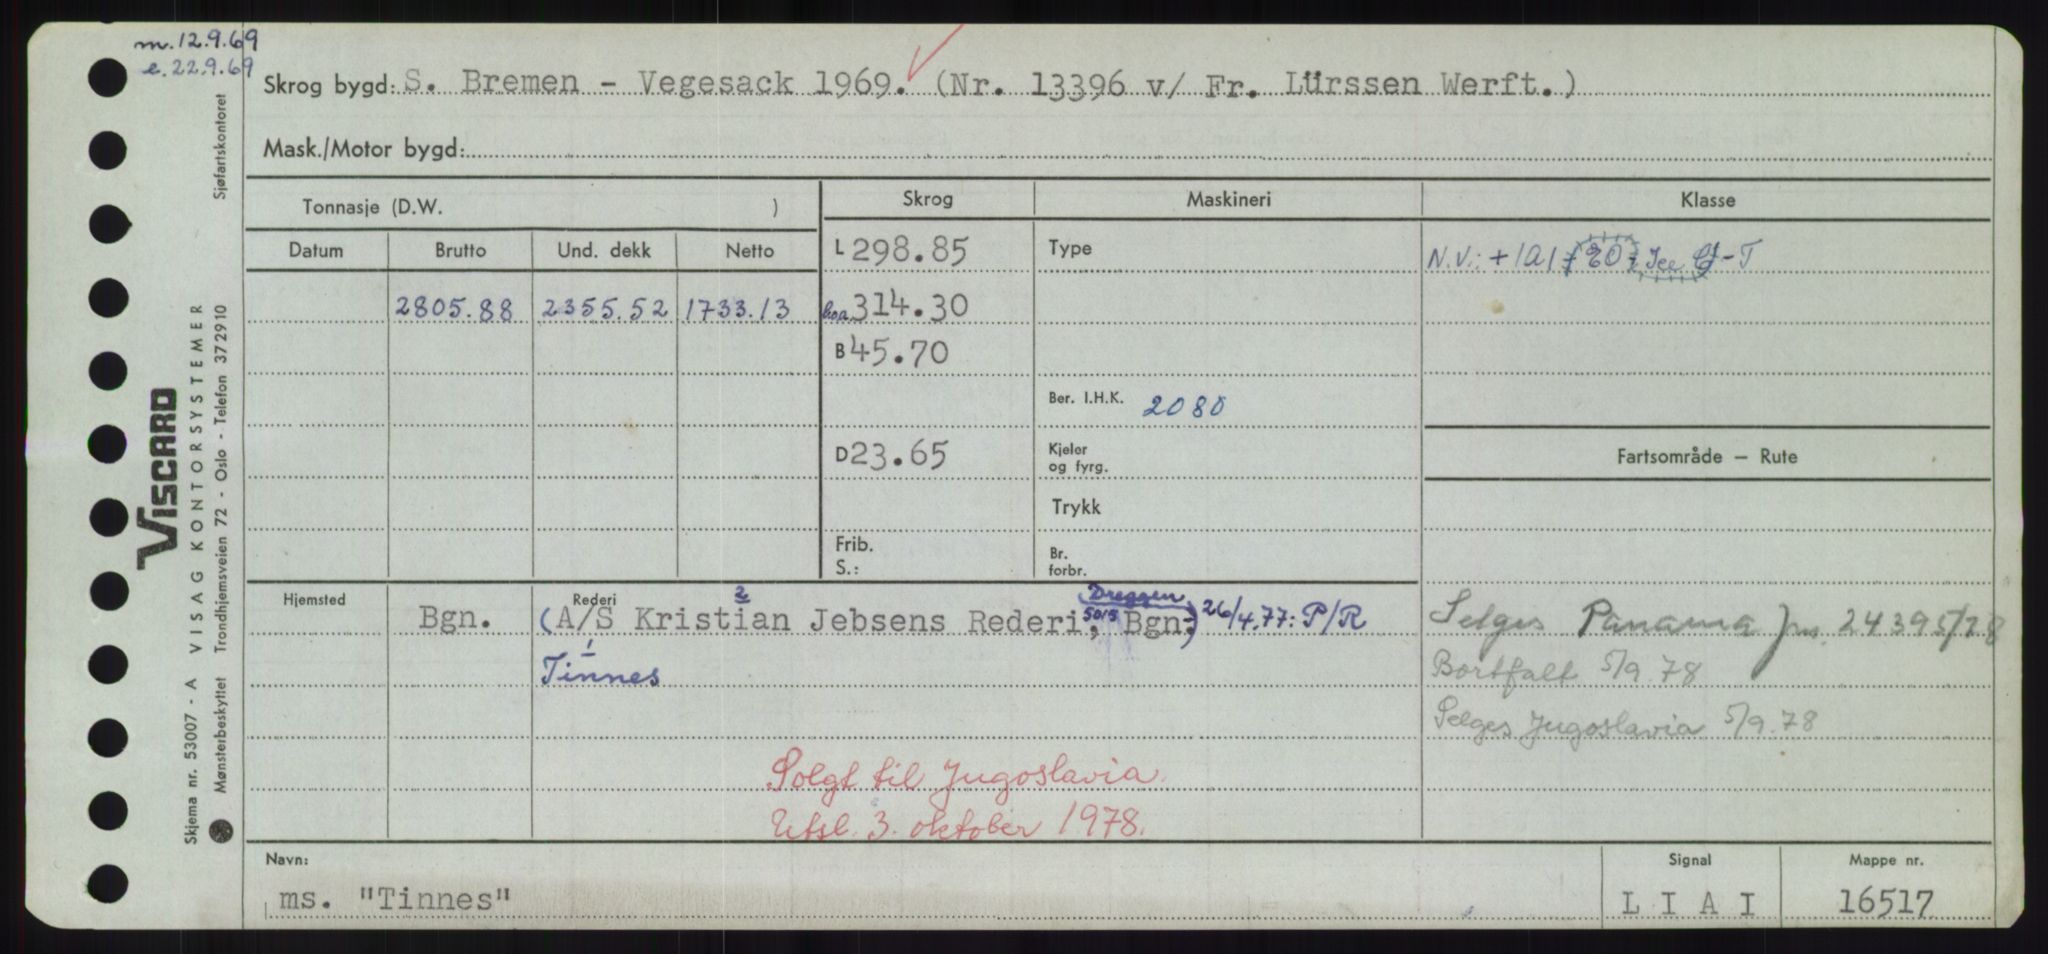 m. 12.9.69
e. 22.9.69
Skrog bygd: S. Bremen - Vegesack 1969. (Nr. 13396 v/ Fr. Lürssen Werft.)
Mask./Motor bygd:
Tonnasje (D.W. )
Skrog
Maskineri
Klasse
Datum
Brutto
Und. dekk
Netto
L 298.85
Type
N.V.: + 1A1 EO Ice C - T
2805.88 2355.52 1733.13
loa. 314.30
B 45.70
Ber. I.H.K. 2080
D 23.65
Kjeler
og fyrg.
Fartsområde — Rute
Trykk
Frib.
S.:
Br.
forbr.
Hjemsted
Rederi
2
Dreggen
5015
Bgn. (A/S Kristian Jebsens Rederi, Bgn.) 26/4.77: P/R
1
Tinnes
Selges Panama jnr. 24395/78
Bortfalt 5/9.78
Selges Jugoslavia 5/9.78
Solgt til Jugoslavia.
Utsl. 3. oktober 1978.
Navn:
ms. "Tinnes"
Signal
L I A I
Mappe nr.
16517
Sjøfartskontoret
VISCARD
Skjema nr. 53007 - A VISAG KONTORSYSTEMER
Mønsterbeskyttet Trondhjemsveien 72 - Oslo - Telefon 372910